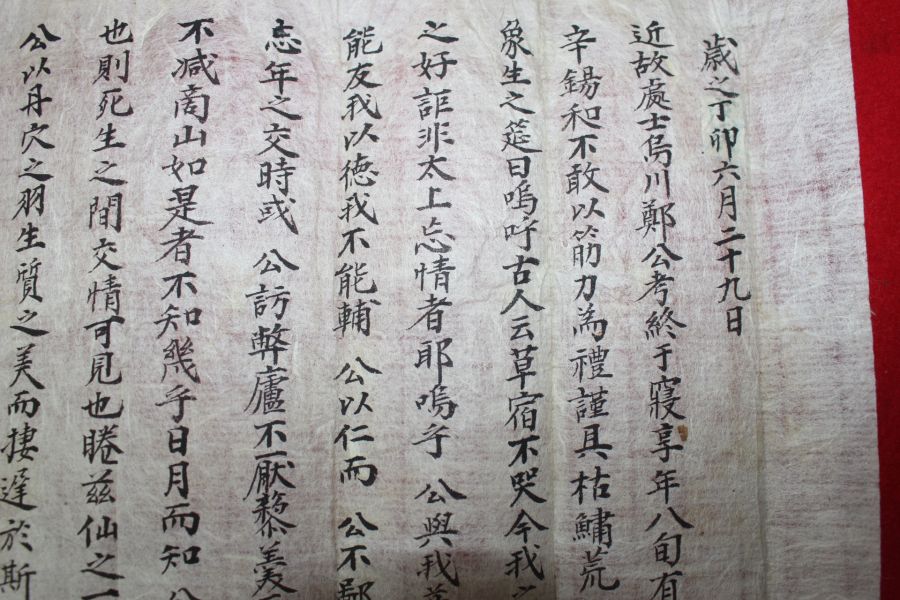 歲之丁卯六月二十九日
近故處士烏川鄭公考終于寢享年八旬有
辛錫和不敢以筋力為禮謹具枯鱐荒
象生之筵曰嗚呼古人云草宿不哭今我
之好詎非太上忘情者耶嗚乎 公與我
能友我以德我不能輔 公以仁而 公不鄙
忘年之交時或 公訪弊廬不厭藜羹
不减啇山如是者不知幾乎日月而知
也則死生之間交情可見也睠茲仙之
公以丹穴之羽生質之美而捿遲於斯